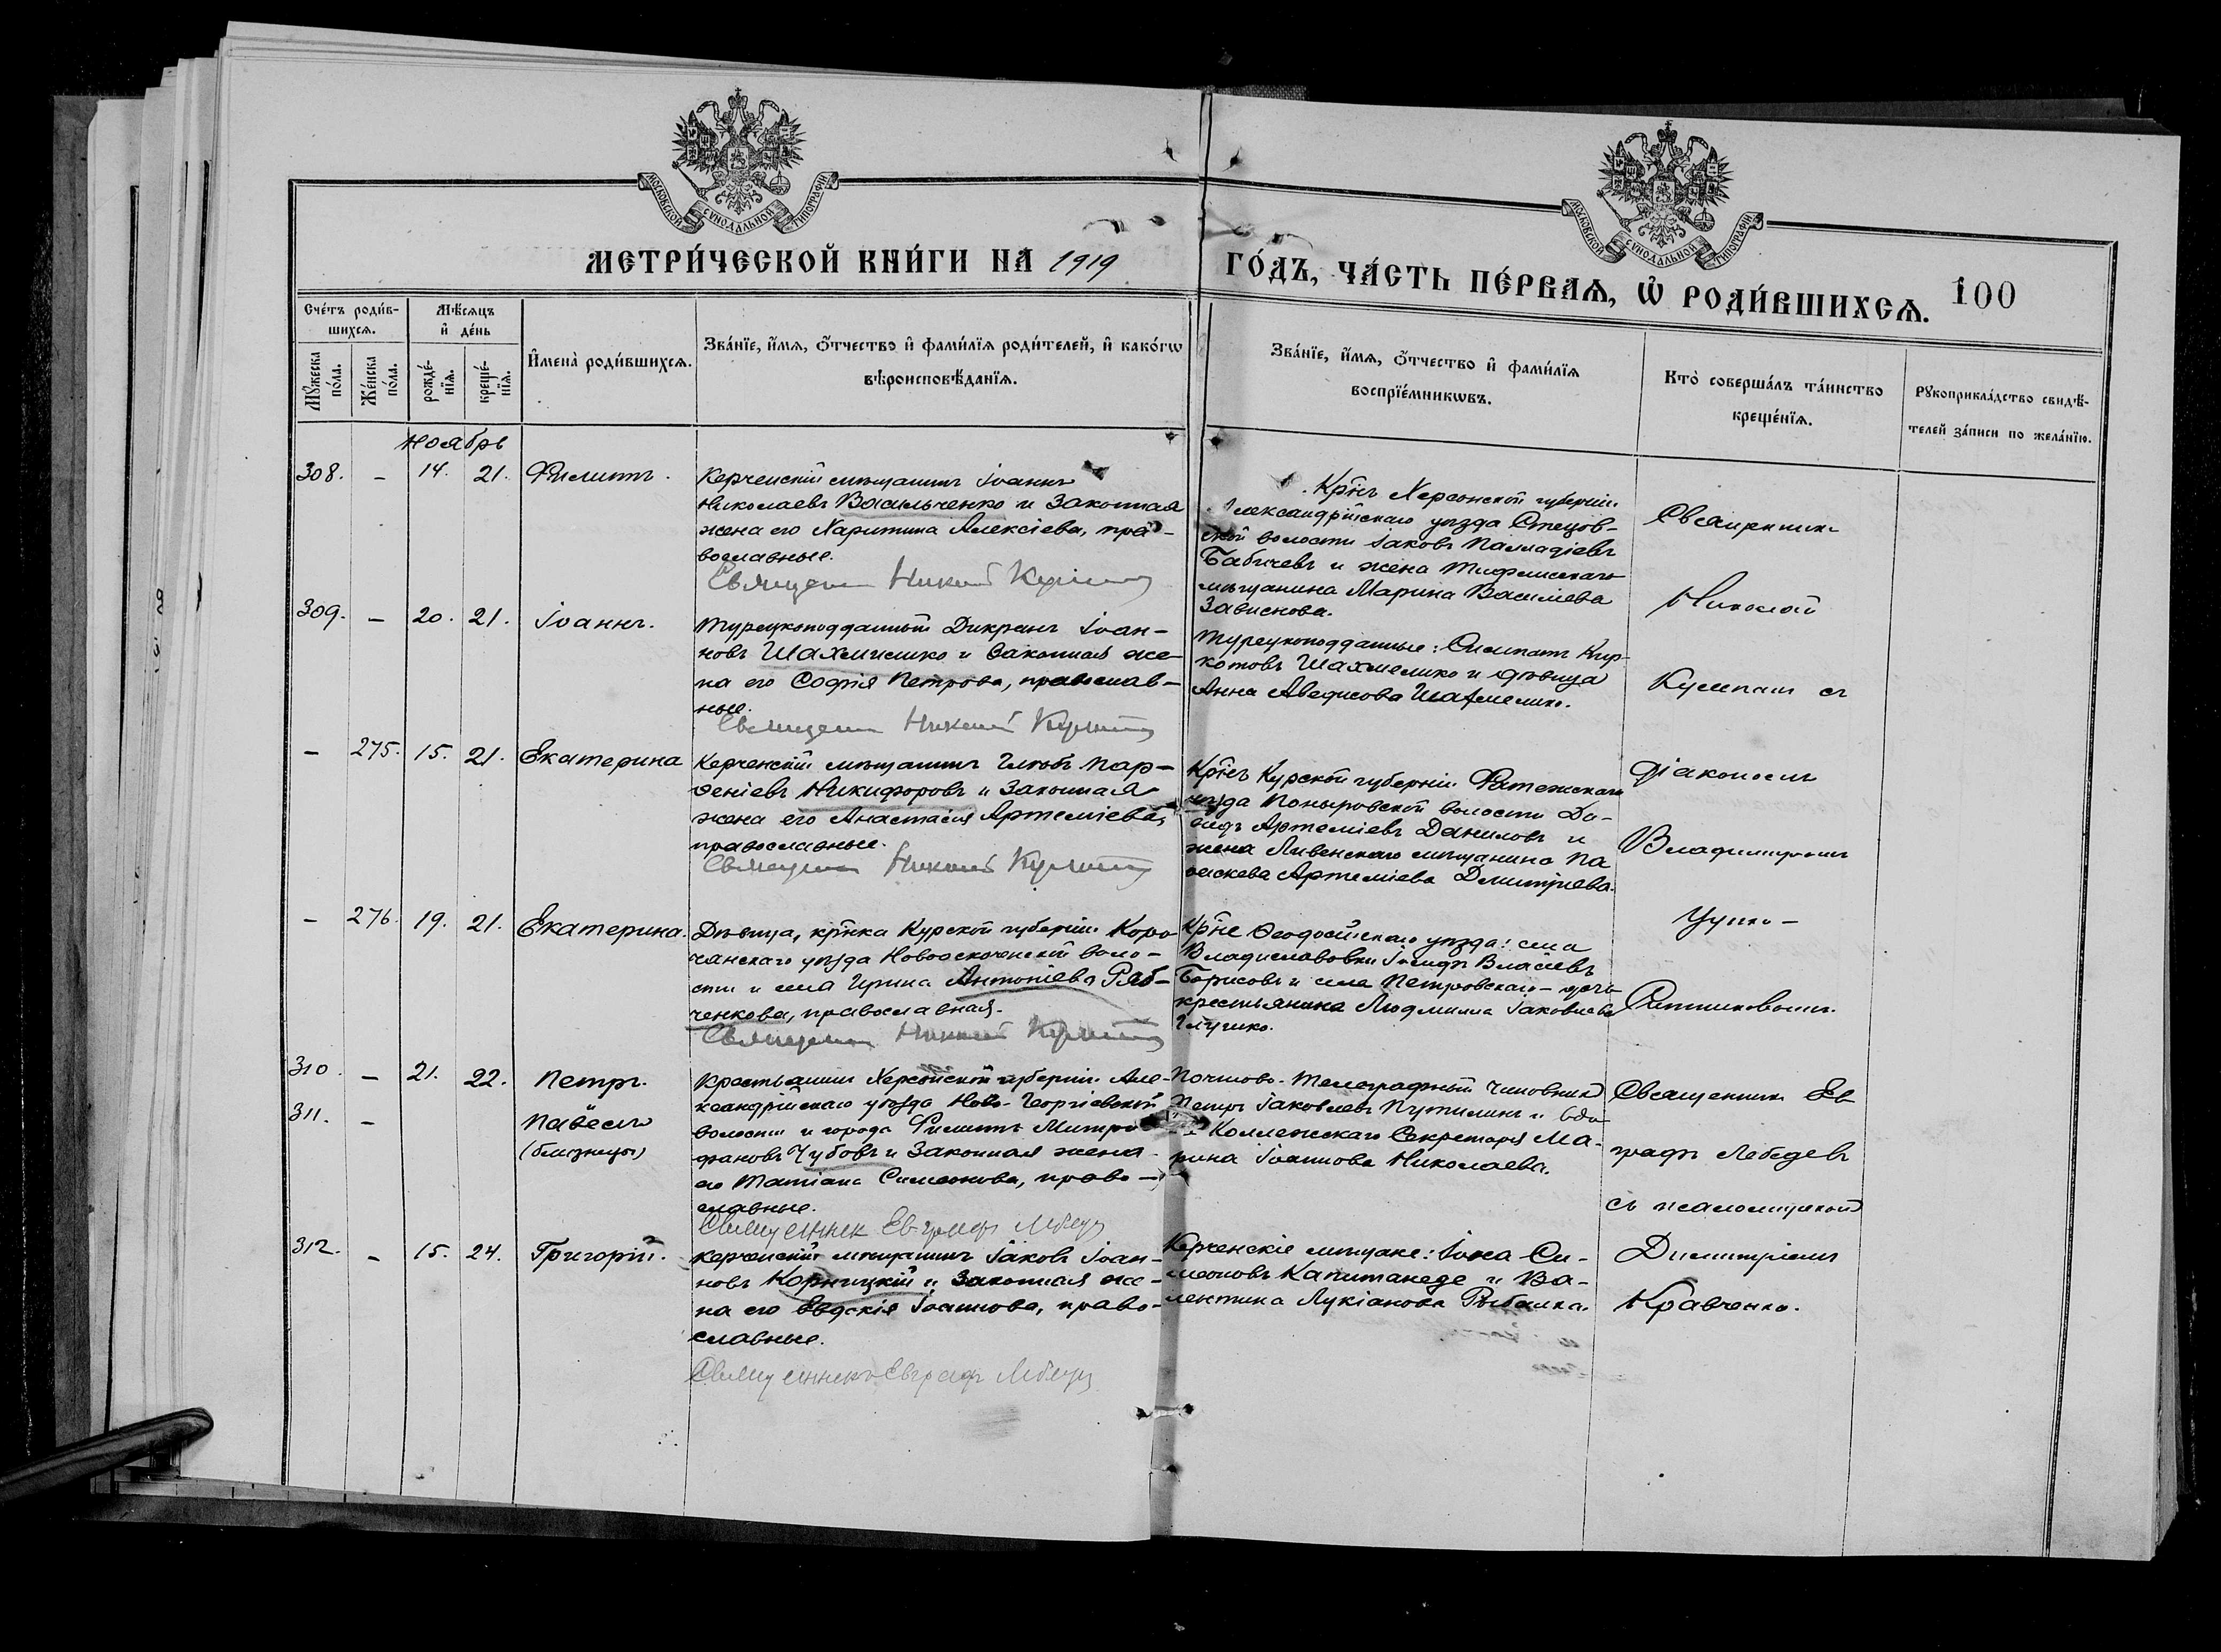 МОСКОВСКОЙ СѴНОДАЛЬНОЙ ТИПОГРАФІИ
МОСКОВСКОЙ СѴНОДАЛЬНОЙ ТИПОГРАФІИ
МЕТРИ́ЧЕСКОЙ КНИ́ГИ НА 1919
ГО́ДЪ, ЧА́СТЬ ПЕ́РВАѦ, Ѡ РОДИ́ВШИХСѦ. 100
Сче́тъ роди́в-
шихсѧ.
Мѣсѧцъ
и҆ де́нь
Мꙋ́жеска по́ла.
Же́нска по́ла.
рожде́-
нїѧ.
креще́-
нїѧ.
И҆мена̀ роди́вшихсѧ.
Зва́нїе, и҆́мѧ, ѻ҆́тчество и҆ фами́лїѧ роди́телей, и҆ како́гѡ
вѣроисповѣ́данїѧ.
Зва́нїе, и҆́мѧ, ѻ҆́тчество и҆ фами́лїѧ
воспрїе́мникѡвъ.
Кто̀ соверша́лъ та́инство
креще́нїѧ.
Рꙋкоприкла́дство свидѣ́-
телей за́писи по жела́нїю.
Ноябрь
308. – 14. 21. Филиппъ.
Керченскій мѣщанинъ Іоаннъ
Николаевъ Васильченко и законная
жена его Харитина Алексіева, пра-
вославные.
Священ Никол
Кр̃нъ Херсонской губерніи
Александрійскаго уѣзда Стецов-
ской волости Іаковъ Палладіевъ
Бабичевъ и жена Тифлисскаго
мѣщанина Марина Василіева
Священник
Николай
309. – 20. 21. Іоаннъ.
Турецкоподданный Дикранъ Іоан-
новъ Шахмелико и законная же-
на его Софія Петрова, православ-
ные.
Священ Николай
Турецкоподданные: Кир-
котовъ Шахмелико и дѣвица
Анна Аведисова Шахмелико.
съ
– 275. 15. 21. Екатерина
Керченскій мѣщанинъ Глѣбъ Пар-
ѳеніевъ Никифоровъ и законная
жена его Анастасія Артеміева,
православные.
Священ Николай
Кр̃нъ Курской губерніи Фатежскаго
уѣзда Поныровской волости Да-
видъ Артеміевъ Даниловъ и
жена Ливенскаго мѣщанина Па
раскева Артеміева Димитріева.
діакономъ
Владиміромъ
– 276. 19. 21. Екатерина.
Дѣвица, кр̃нка Курской губерніи Коро
чанскаго уѣзда Новооскоченской воло-
сти и села Ирина Антоніева Ряб-
ченкова, православная.
Священ Николай
Кр̃не Ѳеодосійскаго уѣзда: села
Владиславовки Іосифъ Власіевъ
Борисовъ и села Петровскаго – дочь
крестьянина Людмила Іаковлева
Глушко.
310. – 21. 22. Петръ.
311. – Павелъ
(близнецы)
Крестьянинъ Херсонской губерніи Але-
ксандрійскаго уѣзда Ново-Георгіевской
волости и города Филиппъ Митро-
фановъ Чубовъ и законная жена
его Татіана Симеонова, право-
славные.
Священникъ Евграфъ Лебедев
Почтово-телеграфный чиновникъ
Петръ Іаковлевъ Путилинъ и вдо
ва Коллежскаго Секретаря Ма-
рина Іоаннова Николаева.
Священникъ Ев
графъ Лебедевъ
съ псаломщикомъ
312. – 15. 24. Григорій.
Керченскій мѣщанинъ Іаковъ Іоан-
новъ Корницкій и законная же-
на его Евдокія Іоаннова, право-
славные.
Священникъ Евграфъ Лебедев
Керченскіе мѣщане: Іона Си-
меоновъ Капитанеде и Ва-
лентина Лукіанова Рыбалка.
Димитріемъ
Кравченко.